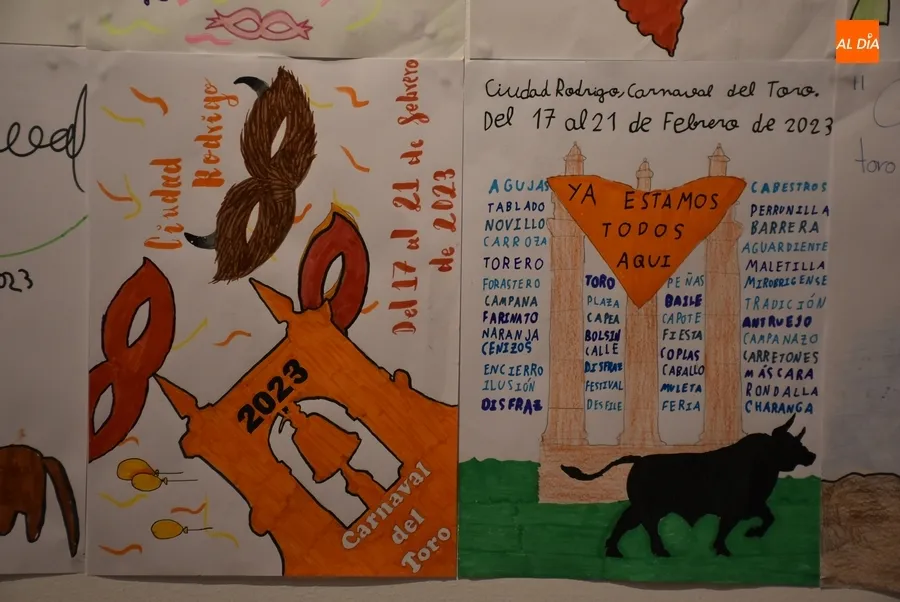 AL DÍA
2023
Ciudad
Rodrigo
Del 17 al 21 de Febrero
de 2023
2023
Carnaval
del
Toro
Ciudad Rodrigo, Carnaval del Toro.
Del 17 al 21 de Febrero de 2023
YA ESTAMOS
TODOS
AQUI
AGUJAS
TABLADO
NOVILLO
CARROZA
TORERO
FORASTERO
CAMPANA
FARINATO
NARANJA
CENIZOS
ENCIERRO
ILUSIÓN
DISFRAZ
TORO
PLAZA
CAPEA
BOLSIN
CALLE
DISFRAZ
FESTIVAL
DESFILE
PEÑAS
BAILE
CAPOTE
FIESTA
COPLAS
CABALLO
MULETA
FERIA
CABESTROS
PERRUNILLA
BARRERA
AGUARDIENTE
MALETILLA
MIROBRIGENSE
TRADICIÓN
ANTRUEJO
CAMPANAZO
CARRETONES
MÁSCARA
RONDALLA
CHARANGA
toro